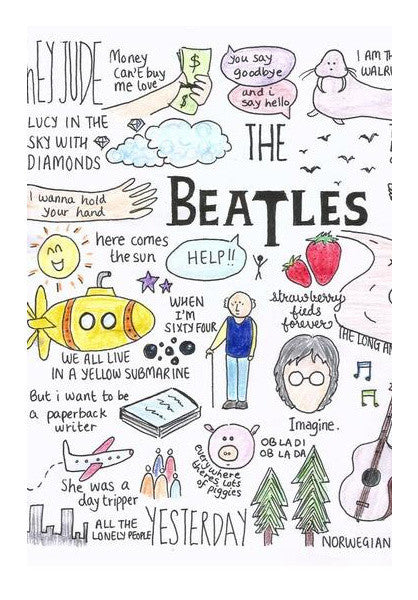 HEY JUDE
Money
can't buy
me love
$
$
you say
goodbye
and i
say hello
I AM TH
WALR
LUCY IN THE
SKY WITH
DIAMONDS
THE
BEATLES
I wanna hold
your hand
here comes
the sun
HELP!!
strawberry
fieds
forever
WHEN
I'M
SIXTY FOUR
THE LONG AN
WE ALL LIVE
IN A YELLOW SUBMARINE
But i want to be
a paperback
writer
Imagine.
everywhere
theres lots
of piggies
OBLADI
OB LA DA
She was a
day tripper
ALL THE
LONELY PEOPLE
YESTERDAY
NORWEGIAN